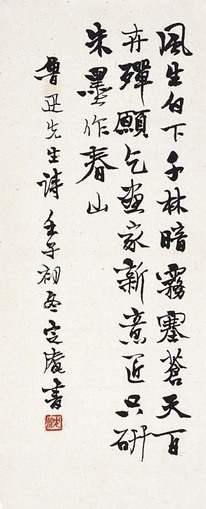 風生白下千林暗霧塞蒼天百
卉殫願乞畫家新意匠只研
朱墨作春山
魯迅先生詩壬子初冬定庵書